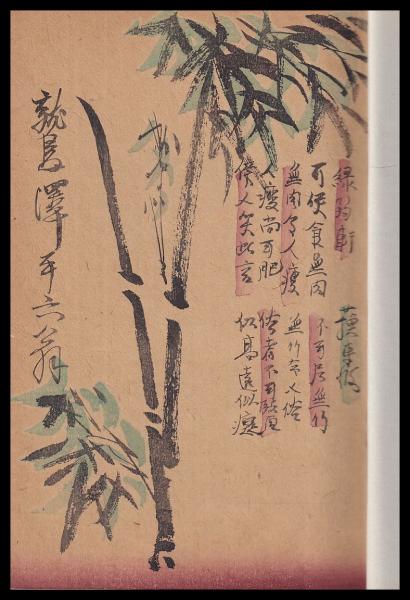 緑筠軒 蘓東坡
可使食無肉 不可居無竹
無肉令人瘦 無竹令人俗
人瘦尚可肥 俗者不可醫
傍人笑此言 似高還似癡